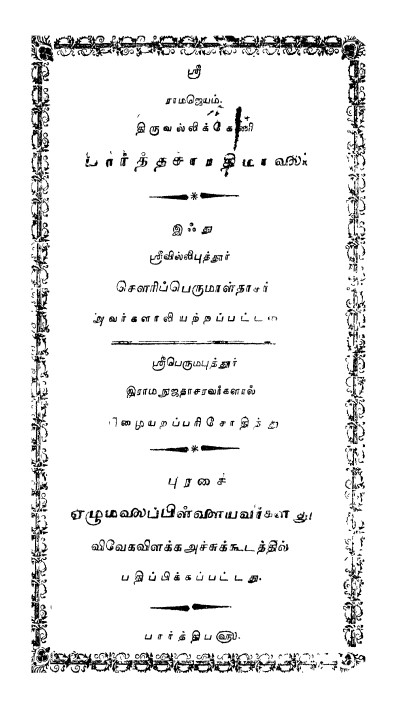 ஸ்ரீ
ராமஜெயம்.
திருவல்லிக்கேணி
பார்த்தசாரதிமாலை
இஃது
ஸ்ரீவில்லிபுத்தூர்
சௌரிப்பெருமாள்தாசர்
அவர்களாலியற்றப்பட்டது
ஸ்ரீபெருமபுத்தூர்
இராமநுஜதாசரவர்களால்
பிழையறப்பரிசோதித்து
புரசை
ஏழுமலைப்பிள்ளையவர்களது
விவேகவிளக்கஅச்சுக்கூடத்தில்
பதிப்பிக்கப்பட்டது.